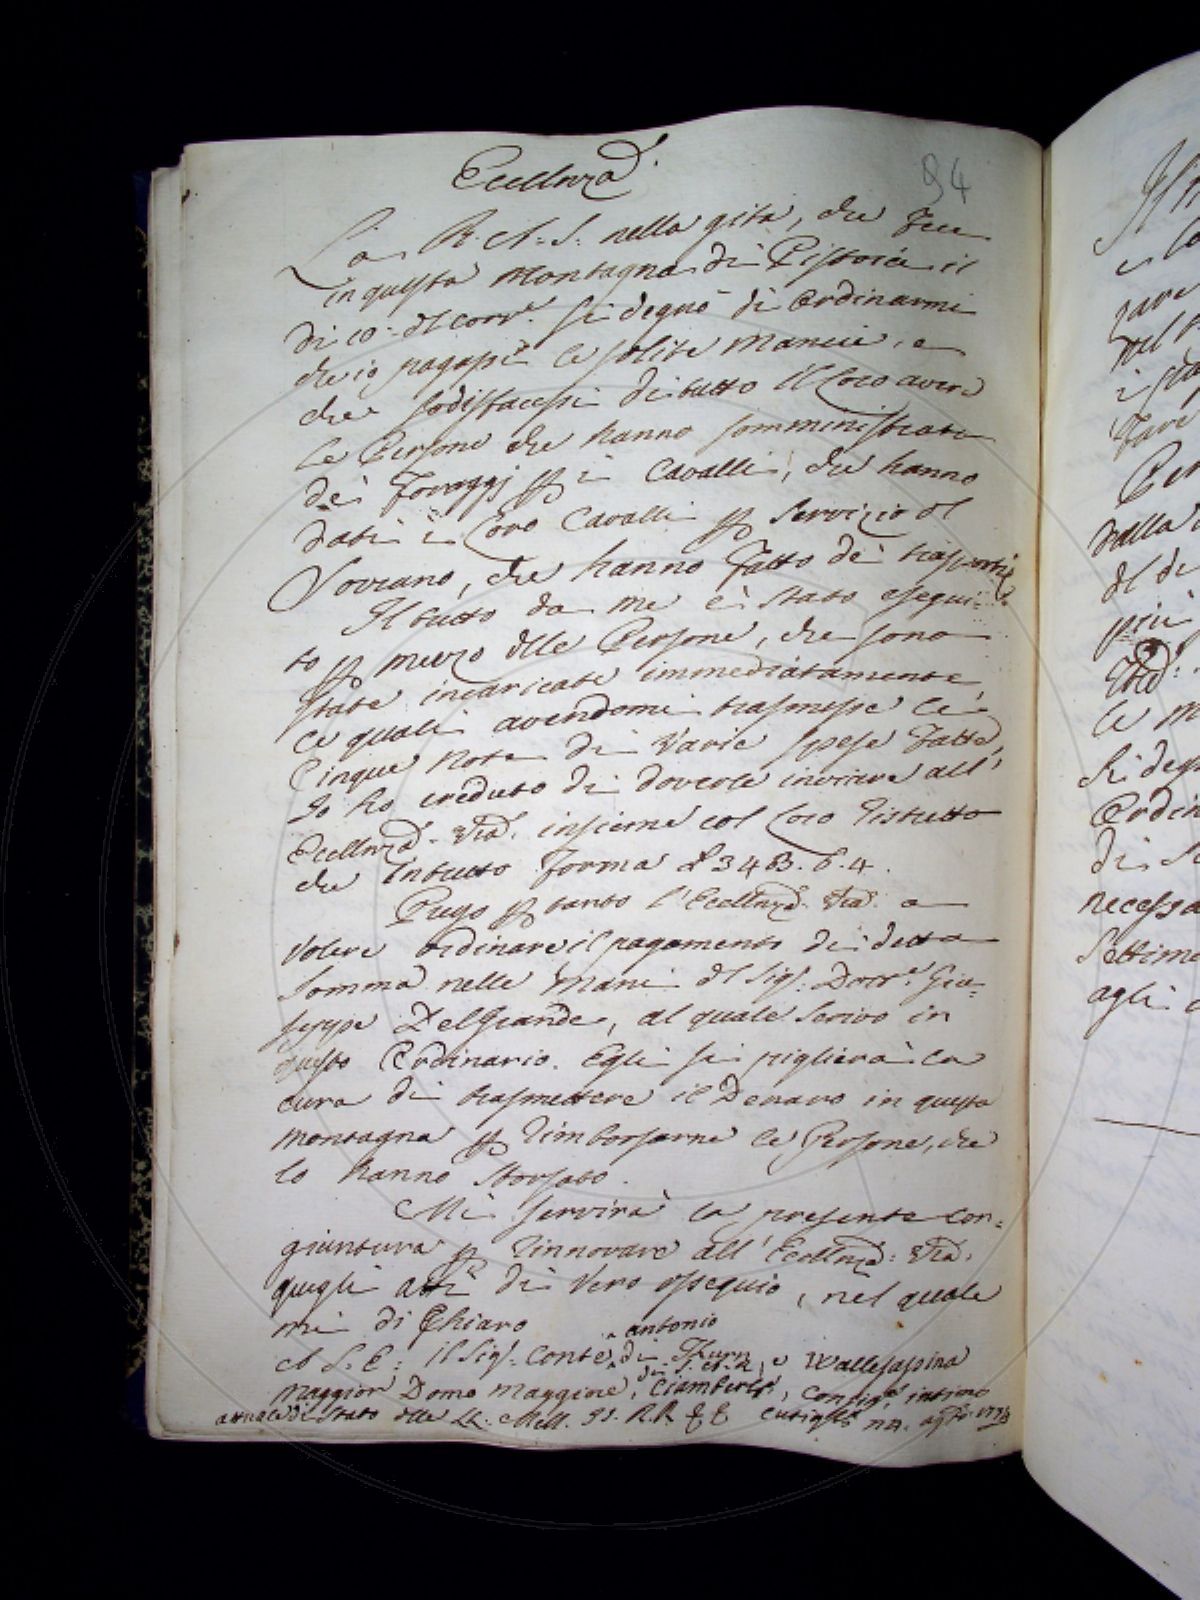 94
Ecellnza
La R. A. S. nella gita, che fece
in questa Montagna di Pistoia il
di 10. del corr.e si degnò di ordinarmi
che io pagassi le solite mancie, e
che sodisfacessi di tutto il loro avere
le Persone che hanno somministrato
dei foraggj p i Cavalli, che hanno
dati i loro Cavalli p servizio del
Sovrano, che hanno fatto dei trasporti.
Il tutto da me è stato esegui=
to p mezzo delle Persone, che sono
state incaricate immediatamente,
le quali avendomi trasmesse le
Cinque note di varie spese fatte,
Io ho creduto di doverle inviare all'
Ecellnza Vra. insieme col loro ristretto
che in tutto forma £ 343. 6. 4.
Prego p tanto l'Ecellnza Vra. a
volere ordinare il pagamento di detta
somma nelle mani del Sig: Dott.e Giu=
seppe Del Grande, al quale scrivo in
questo Ordinario. Egli si piglierà la
cura di trasmettere il Denaro in questa
montagna p rimborsarne le Persone, che
lo hanno sborsato.
Mi servirà la presente con=
giuntura p rinnovare all' Ecellnza: Vra.
quegli atti di vero ossequio, nel quale
mi di Chiaro
A S. E: il Sig: Conte Antonio di Thurn, e Wallesassina
Maggior Domo Maggiore, di S. A. R., Ciamberl., Consig.e intimo
attuale di Stato delle LL. MM. II. R. R. & & Cutigl.o agto. 1778